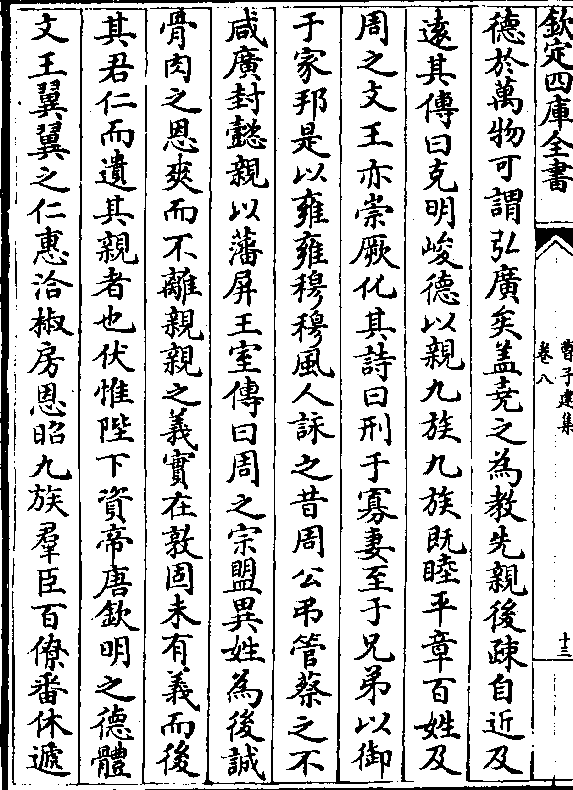 欽定四庫全書
曹子建集
卷八
十三
德於萬物可謂弘廣矣盖堯之為教先親後疎自近及
遠其傳曰克明峻德以親九族九族既睦平章百姓及
周之文王亦崇厥化其詩曰刑于寡妻至于兄弟以御
于家邦是以雍雍穆穆風人詠之昔周公弔管蔡之不
咸廣封懿親以藩屏王室傳曰周之宗盟異姓為後誠
骨肉之恩爽而不離親親之義實在敦固未有義而後
其君仁而遺其親者也伏惟陛下資帝唐欽明之德體
文王翼翼之仁惠洽椒房恩昭九族羣臣百僚番休遞